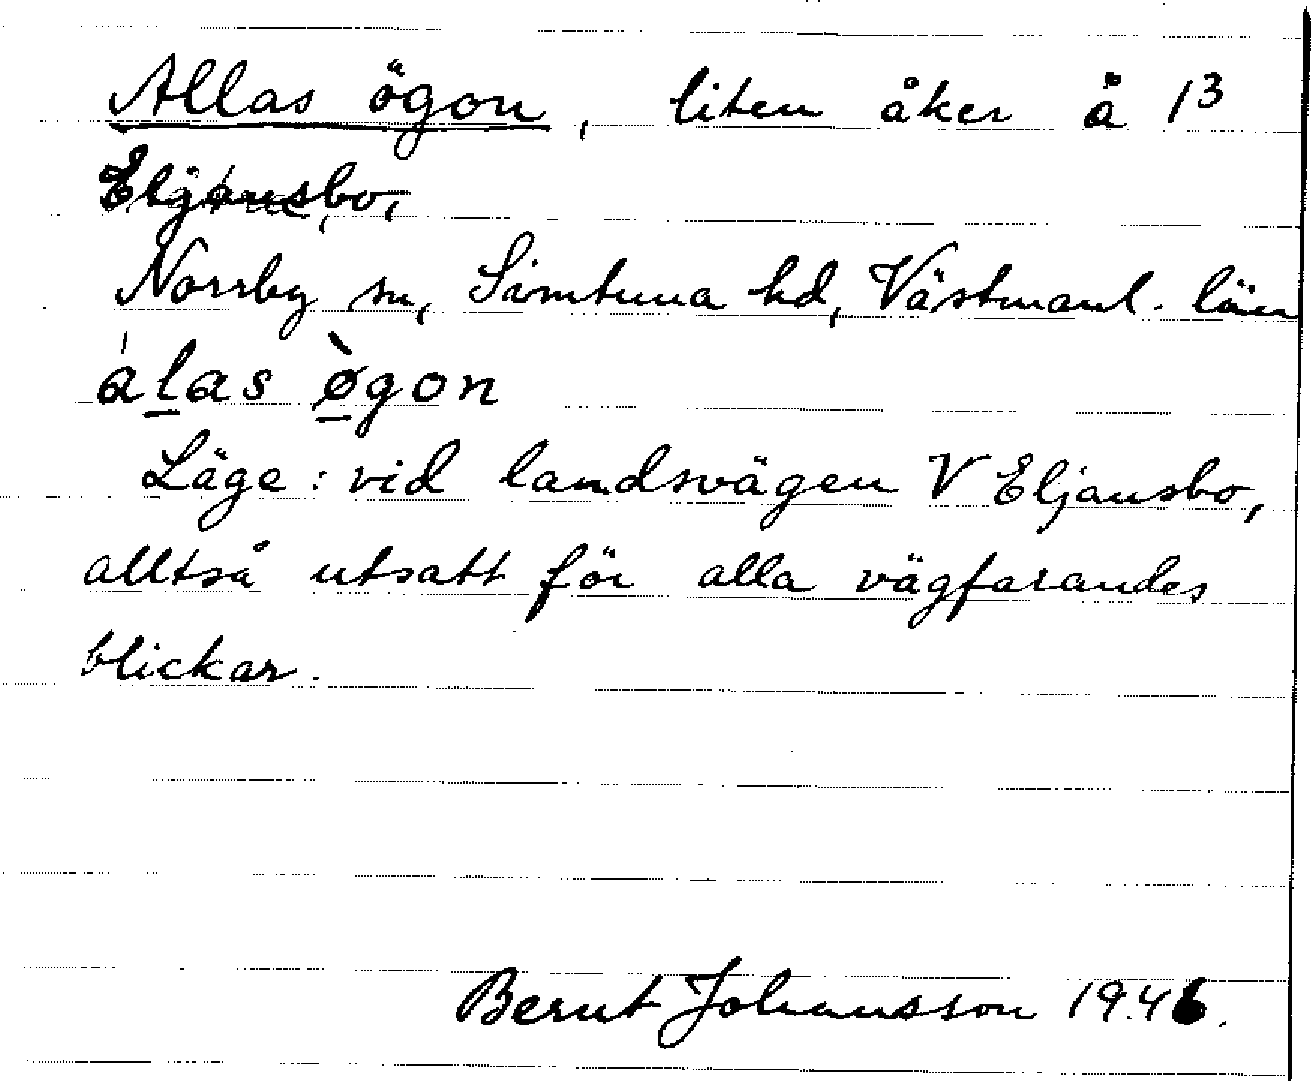 Allas ögon, liten åker å 1³
Eljansbo,
Norrby sn, Simtuna hd, Västmanl. län
álas øgon
Läge: vid landsvägen V Eljansbo,
alltså utsatt för alla vägfarandes
blickar.
Bernt Johansson 1946.